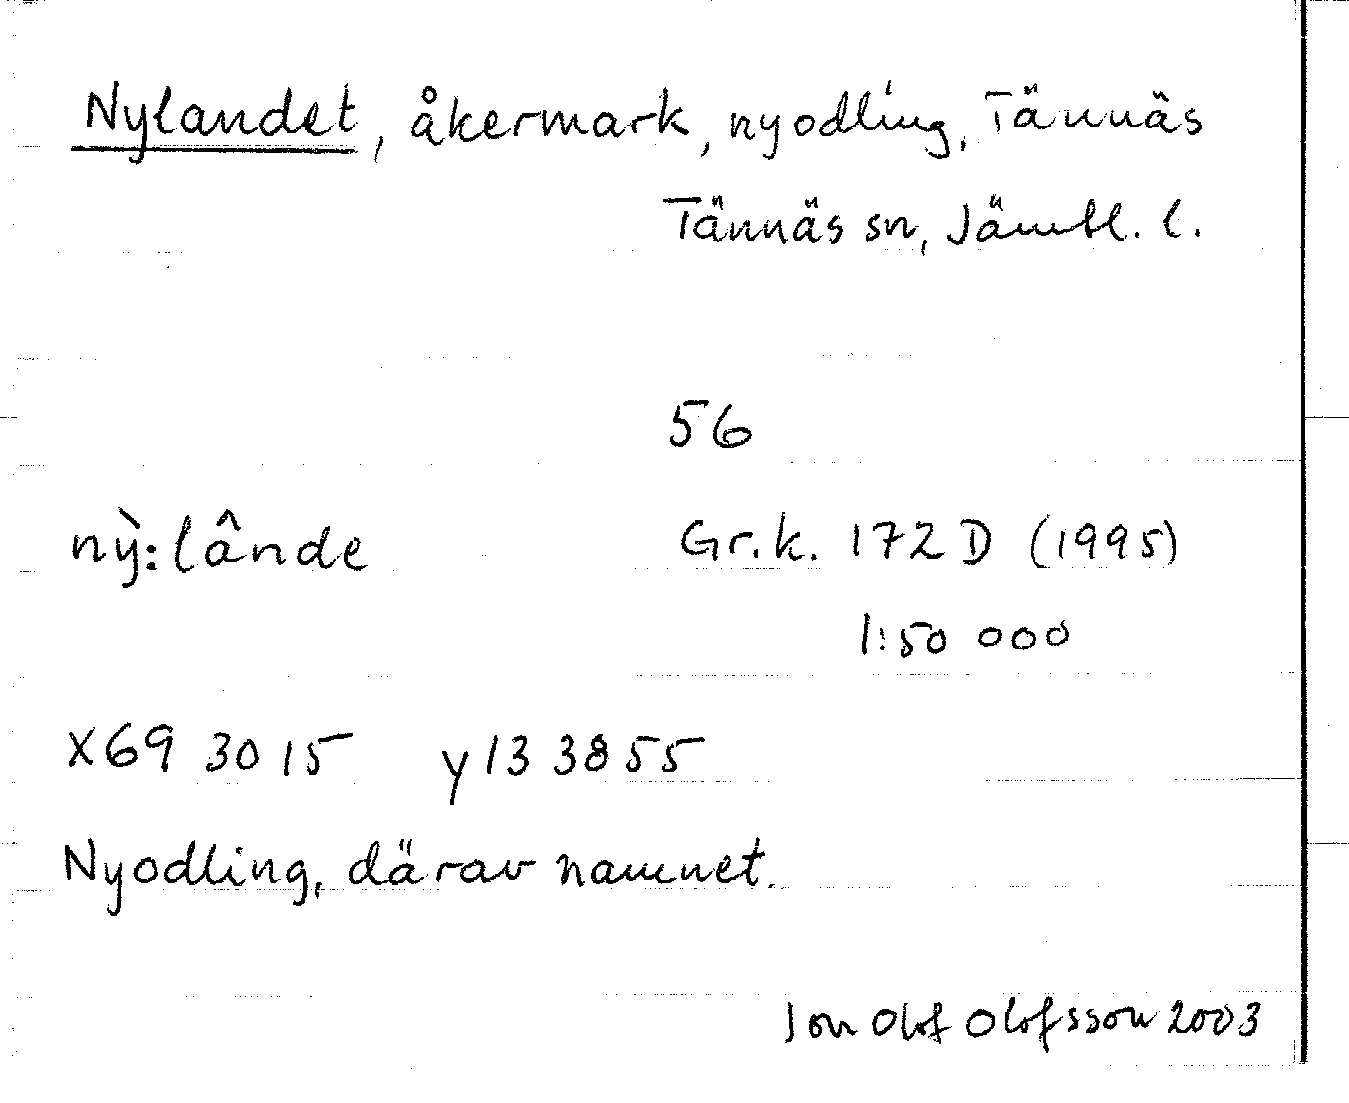 Nylandet, åkermark, nyodling, Tännäs
Tännäs sn, Jämtl. l.
56
nỳ:lânde Gr.k. 172 D (1995)
1:50 000
X69 3015 y13 3855
Nyodling, därav namnet.
Jon Olof Olofsson 2003